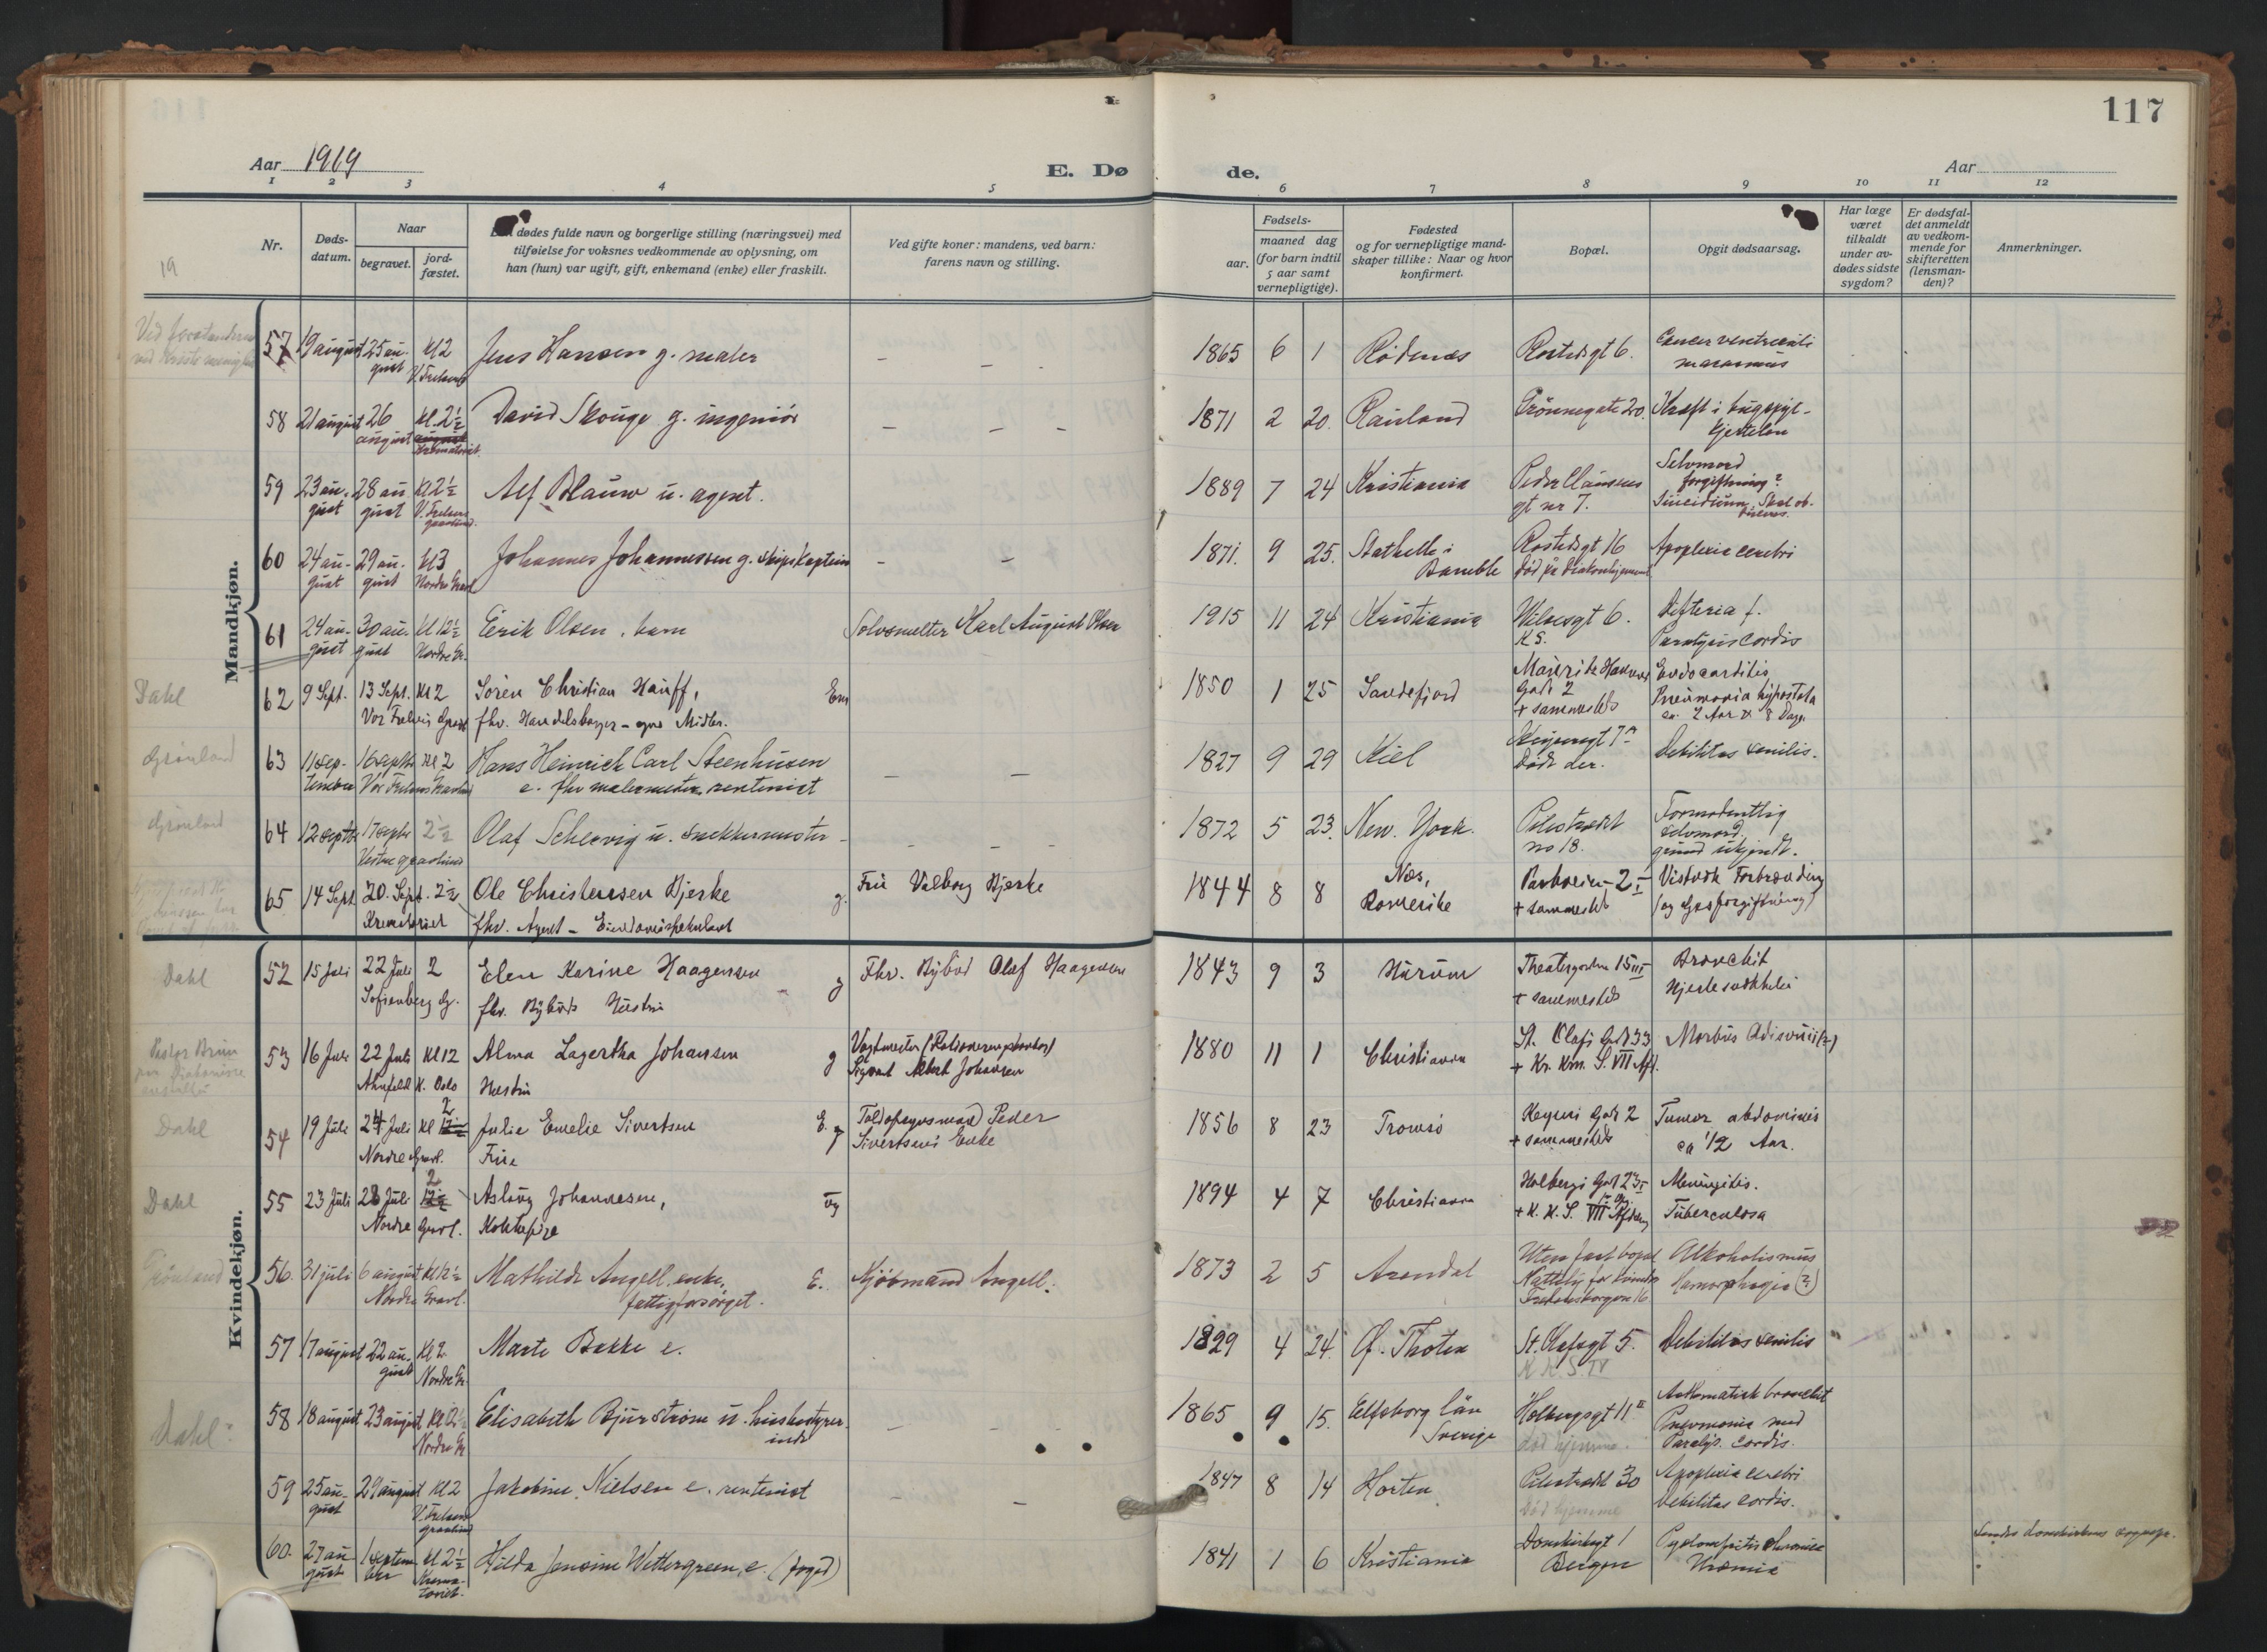 117
Aar 1919
E. Dø
de.
Aar
1 2 3 4 5 6 7 8 9 10 11 12
Nr.
Døds-
datum.
Naar
begravet.
jord-
fæstet.
Den dødes fulde navn og borgerlige stilling (næringsvei) med
tilføielse for voksnes vedkommende av oplysning, om
han (hun) var ugift, gift, enkemand (enke) eller fraskilt.
Ved gifte koner: mandens, ved barn:
farens navn og stilling.
Fødsels-
aar.
maaned dag
(for barn indtil
5 aar samt
vernepligtige).
Fødested
og for vernepligtige mand-
skaper tillike: Naar og hvor
konfirmert.
Bopæl.
Opgit dødsaarsag.
Har læge
været
tilkaldt
under av-
dødes sidste
sygdom?
Er dødsfal-
det anmeldt
av vedkom-
mende for
skifteretten
(lensman-
den)?
Anmerkninger.
19
Mandkjøn.
57 19 august 25 au- kl 2 Jens Hansen g. maler – – 1865 6 1 Rødenes Rostedsgt 6. Cancer ventriculi
gust V. Frelsers marasmus
58 21 august 26 kl. 2½ David Skouge g. ingeniör – – – 1871 2 20. Rauland Grönnegate 20. Kræft i bugspyt-
august august kjertelen
Krematoriet.
59 23 au- 28 au kl 2½ Alf Blauw u. agent. 1889 7 24 Kristiania Peder Claussens Selvmord
gust gust V. Frelsers gt nr 7. forgiftning?
gravlund. Suicidium.
60 24 au- 29 au- kl 3 Johannes Johannessen g. skipskaptein – – 1871. 9 25. Stathelle i Rostedsgt 16 Apoplexia cerebri
gust gust Nordre Gravl Bamble Död på Diakonhjemmet
61 24 au- 30 au- kl 12½ Eirik Olsen, barn Sølvsmelter Karl August Olsen 1915 11 24 Kristiania Wilsesgt 6. Difteria f.
gust gust Nordre Gr. K.S. Paralysis cordis
Dahl 62 9 Sept. 13 Sept. Kl 2 Sören Christian Hauff, Em 1850 1 25 Sandefjord Mauritz Hansens Endocarditis
Vor Frelsers Gravl fhv. Handelsborger – egne Midler. Gade 2 Pneumonia hypostata
+ sammesteds ca. 2 Aar & 8 Dage
Grönland 63 11 sep- 16 septbr kl. 2 Hans Heinrich Carl Steenhusen – – 1827 9 29 Kiel Keysersgt 7 Debilitas senilis.
tember Vor Frelsers Gravlund e. fhv malermester, rentenist Död der.
Grönland 64 12 septbr 17 septbr 2½ Olaf Schervig u. snekkermester – – – – 1872 5 23. New. York. Pilestrædet Formodentlig
Vestre gravlund no 18. selvmord.
grund ukjendt.
65 14 Sept 20. Sept. 2½ Ole Christensen Bjerke g. Frue Valborg Bjerke 1844 8 8 Næs, Parkveien 2 I Forbrænding
Krematoriet fhv. Agent – Eiendomsspekulant Romerike + sammesteds (og Gasforgiftning)
Kvindekjøn.
Dahl 52 15 Juli 22 Juli 2 Elen Karine Haagensen g Fhv. Bybud Olaf Haagensen 1843 9 3 Hurum Theatergaden 15 III Bronchit
Sofienberg G. fhv. Bybuds Hustru + sammesteds Hjertesvækkelse
Pastor Bruun 53 16 Juli 22 Juli Kl 12 Alma Lagertha Johansen g Vagtmester (Rationeringskontor) 1880 11 1 Christiania St. Olafs Gade 33 Morbus Adisonii (?)
K. Oslo Hustru Sigvart Albert Johansen + Kr. Km. S. VII Afd.
Dahl 54 19 Juli 24 Juli Kl 2 Julie Emelie Sivertsen E. g Toldopsynsmand Peder 1856 8 23 Tromsö Keysers Gade 2 Tumor abdominis
Nordre Gravl. Frue Sivertsens Enke + sammesteds ca ½ Aar.
Dahl 55 23 Juli 28 Juli 2 Aslaug Johannesen, ug 1894 4 7 Christiania Holbergs Gade 23 I Meningitis.
Nordre Gravl. Kokkepige + K. K. S. VII Afdeling Tuberculosa
Grönland 56. 31 juli 6 august Kl 12½ Mathilde Angell, enke, E. Kjöbmand Angell. 1873 2 5 Arendal Uten fast bopæl Alkoholismus
Nordre Gravl. fattigforsörget. Nattely for kvinder Hæmorrhagia (?)
Fredensborgvn 16
57 17 august 22 au- Kl 2 Marte Bakke e. 1829 4 24. Ö. Thoten St. Olafsgt 5. Debilitas senilis
gust Nordre Gr. K. K. S. IV
Dahl: 58 18 august 23 august Kl 12½ Elisabeth Bjurström u. husbestyrer- – – 1865 9 15. Elfsborg län Holbergsgt 11 II Asthmatisk bronchit
Nordre Gr inde Sverige död hjemme. Pneumonia med
Paralys. cordis.
59 25 au- 29 august kl 2 Jakobine Nielsen e. rentenist – – 1847 8 14 Horten Pilestrædet 30 Apoplexia cerebri
gust V. Frelsers Död hjemme Debilitas cordis.
gravlund
60. 27 au- 1 septem kl 2½ Hilda Jensine Wettergreen, e. (foged) 1841 1 6 Kristiania Domkirkegt 1 Pyelonefritis chronica
gust ber Krema- Bergen Uræmia
toriet.